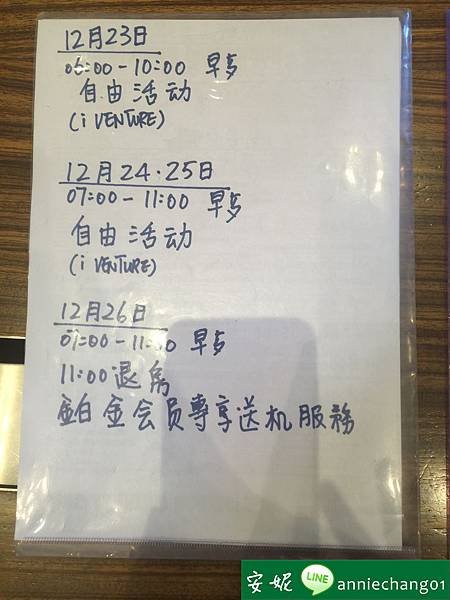 12月23日
06:00-10:00 早多
自由活动
(i VENTURE)
12月24.25日
07:00-11:00 早多
自由活动
(i VENTURE)
12月26日
07:00-11:00 早多
11:00退房
鉑金会员專享送机服務
安妮 LINE anniechang01